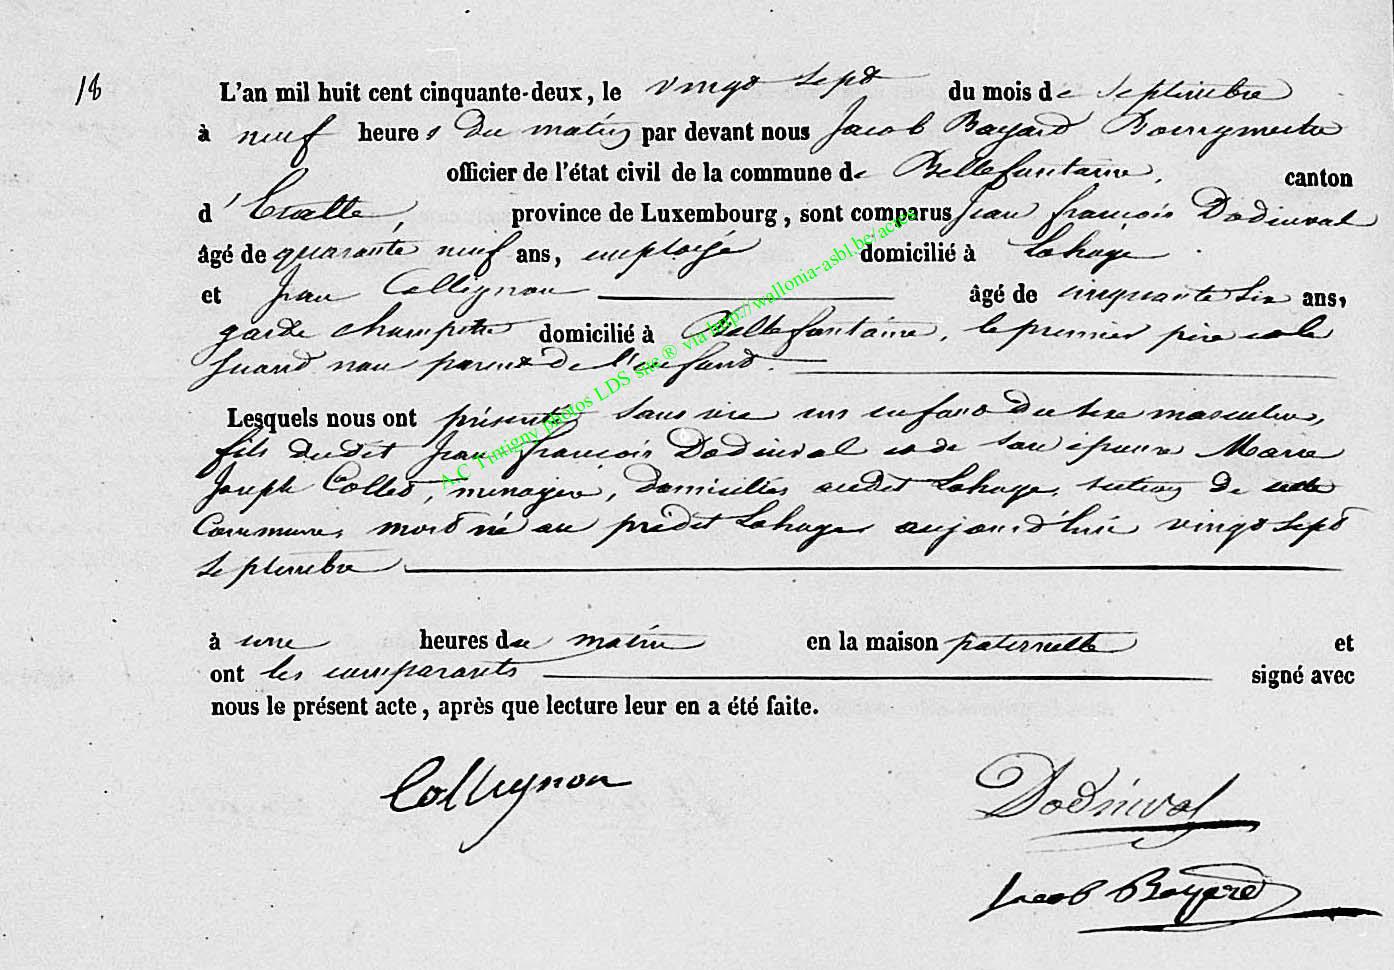 18
L'an mil huit cent cinquante-deux, le vingt sept du mois de Septembre
à neuf heures du matin par devant nous Jacob Bayard Bourgmestre
officier de l'état civil de la commune de Bellefontaine, canton
d'Etalle, province de Luxembourg, sont comparus Jean françois Dodinval
âgé de quarante neuf ans, employé domicilié à Lahage
et Jean Collignon âgé de cinquante six ans,
garde champetre domicilié à Bellefontaine, le premier père et le
second non parent de l'enfant.
Lesquels nous ont présenté sans vie un enfant du sexe masculin,
fils dudit Jean françois Dodinval et de son épouse Marie
Joseph Collet, menagere, domiciliés audit Lahage, section de cette
Commune, mort né au prédit Lahage aujourd'hui vingt sept
septembre
à une heures du matin en la maison paternelle et
ont les comparants signé avec
nous le présent acte, après que lecture leur en a été faite.
Collignon
Dodinval
Jacob Bayard
A.C Tintigny photos LDS site ® via http://wallonia-asbl.be/actes